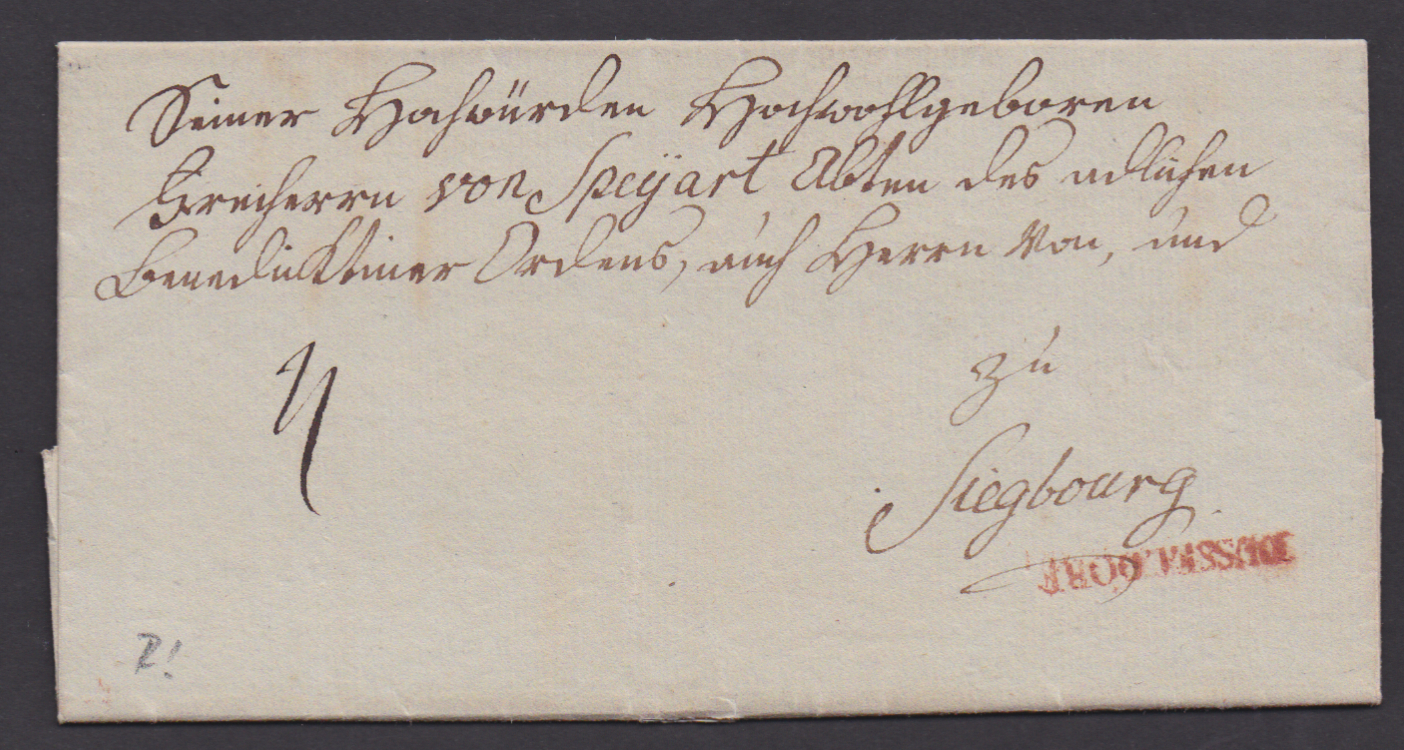 Seiner Hochwürden Hochwohlgeboren
Freiherrn von Speÿart Abten des adlichen
Benedicktiner Ordens, auch Herrn von, und
zu
Siegbourg
DUSSELDORF